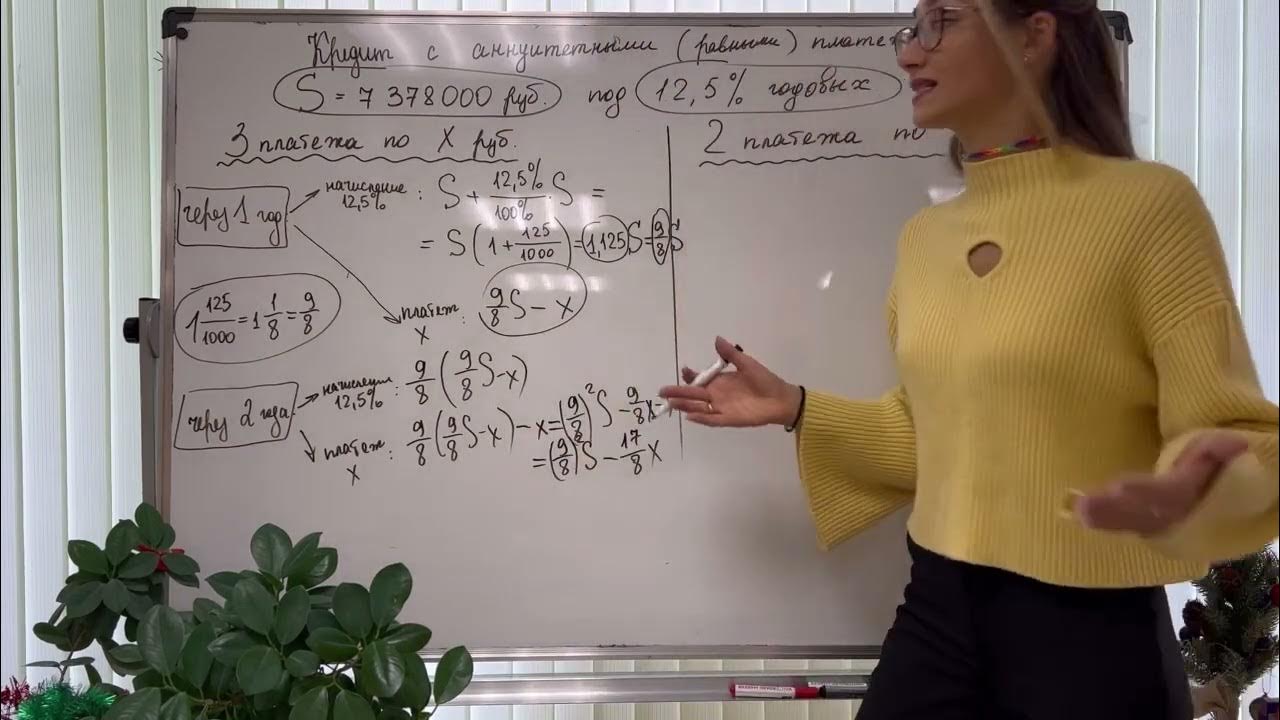 Кредит с аннуитетными (равными) плате
S = 7 378 000 руб. под 12,5% годовых
3 платежа по X руб.
2 платежа по
через 1 год
начисление 12,5% : S + 12,5%/100% · S =
= S (1 + 125/1000) = 1,125 S = 9/8 S
платеж X : 9/8 S − x
1 125/1000 = 1 1/8 = 9/8
через 2 года
начисление 12,5% : 9/8 (9/8 S − x)
платеж X : 9/8 (9/8 S − x) − x = (9/8)² S − 9/8 x −
= (9/8)² S − 17/8 x